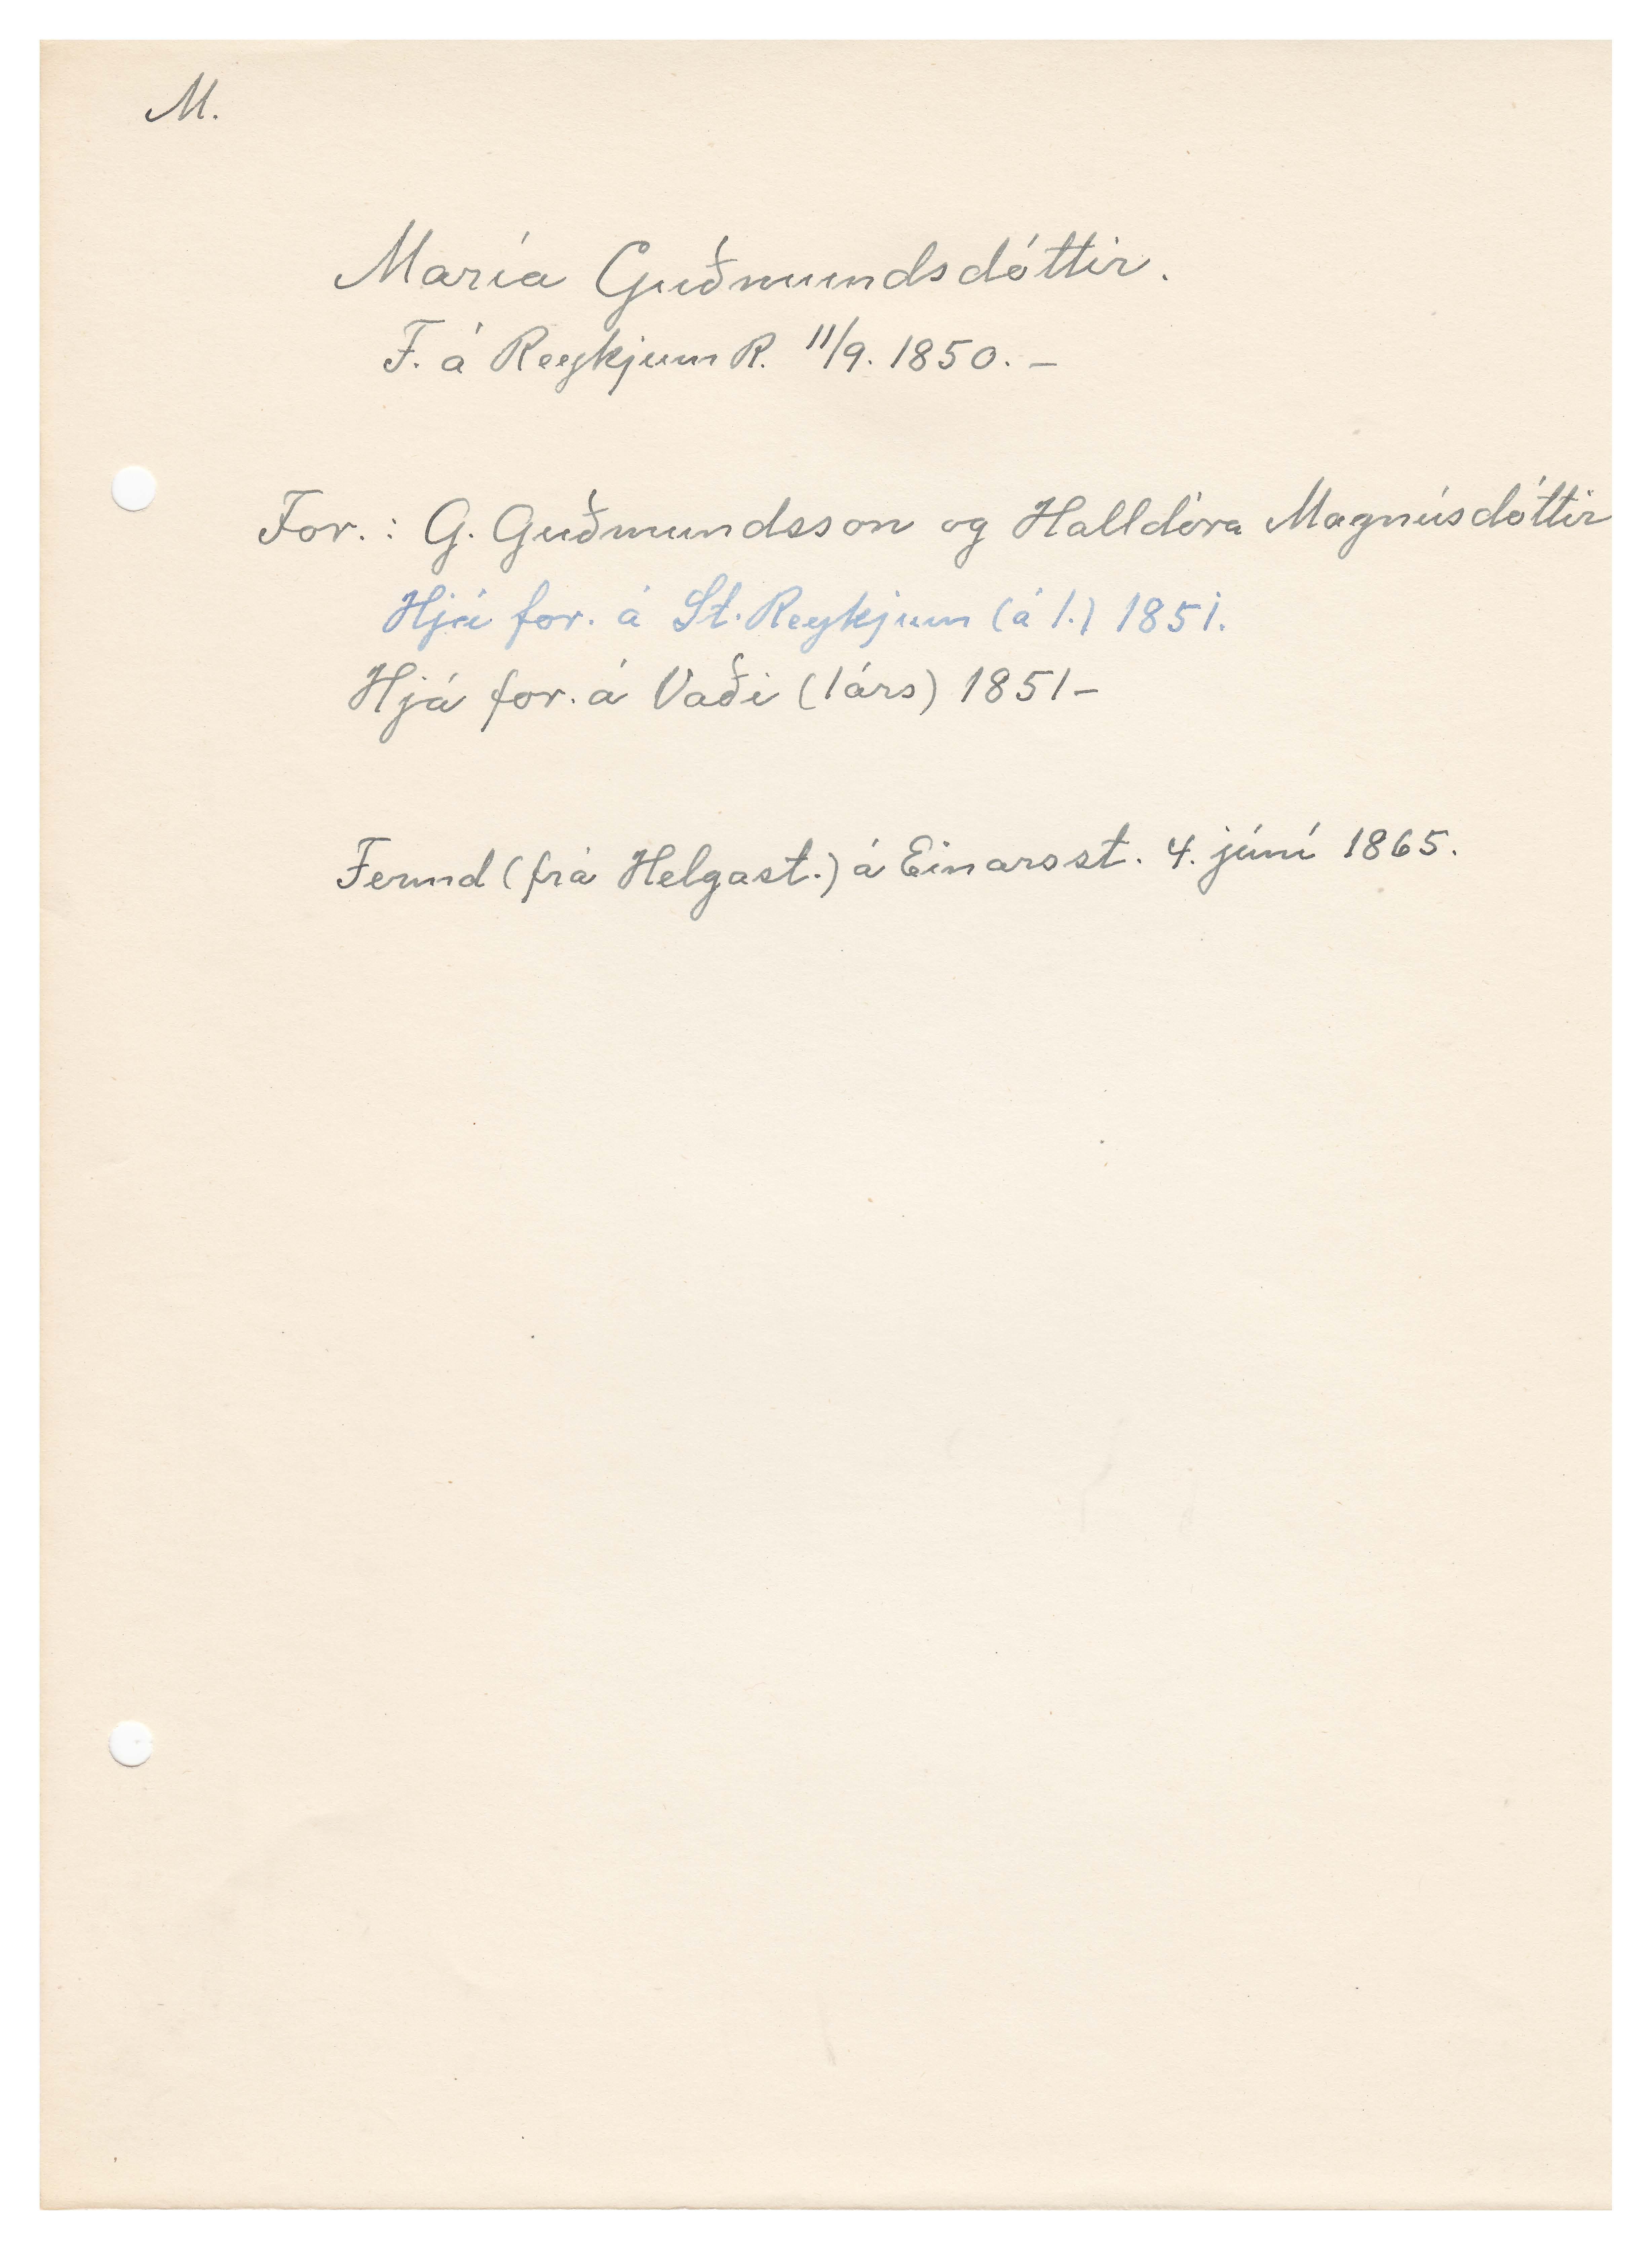 M.
María Guðmundsdóttir.
F. á Reykjum R. 11/9. 1850. –
For.: G. Guðmundsson og Halldóra Magnúsdóttir
Hjá for. á St. Reykjum (á 1.) 1851.
Hjá for. á Vaði (1árs) 1851–
Fermd (frá Helgast.) á Einarsst. 4. júní 1865.